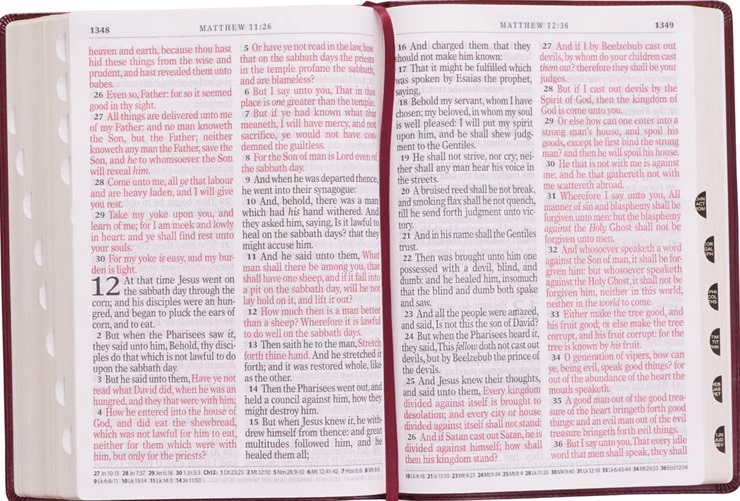 1348
MATTHEW 11:26
heaven and earth, because thou hast
hid these things from the wise and
prudent, and hast revealed them unto
babes.
26 Even so, Father: for so it seemed
good in thy sight.
27 All things are delivered unto me
of my Father: and no man knoweth
the Son, but the Father; neither
knoweth any man the Father, save the
Son, and he to whomsoever the Son
will reveal him.
28 Come unto me, all ye that labour
and are heavy laden, and I will give
you rest.
29 Take my yoke upon you, and
learn of me; for I am meek and lowly
in heart: and ye shall find rest unto
your souls.
30 For my yoke is easy, and my bur-
den is light.
12 At that time Jesus went on
the sabbath day through the
corn; and his disciples were an hun-
gred, and began to pluck the ears of
corn, and to eat.
2 But when the Pharisees saw it,
they said unto him, Behold, thy disci-
ples do that which is not lawful to do
upon the sabbath day.
3 But he said unto them, Have ye not
read what David did, when he was an
hungred, and they that were with him;
4 How he entered into the house of
God, and did eat the shewbread,
which was not lawful for him to eat,
neither for them which were with
him, but only for the priests?
5 Or have ye not read in the law, how
that on the sabbath days the priests
in the temple profane the sabbath,
and are blameless?
6 But I say unto you, That in this
place is one greater than the temple.
7 But if ye had known what this
meaneth, I will have mercy, and not
sacrifice, ye would not have con-
demned the guiltless.
8 For the Son of man is Lord even of
the sabbath day.
9 And when he was departed thence,
he went into their synagogue:
10 And, behold, there was a man
which had his hand withered. And
they asked him, saying, Is it lawful to
heal on the sabbath days? that they
might accuse him.
11 And he said unto them, What
man shall there be among you, that
shall have one sheep, and if it fall into
a pit on the sabbath day, will he not
lay hold on it, and lift it out?
12 How much then is a man better
than a sheep? Wherefore it is lawful
to do well on the sabbath days.
13 Then saith he to the man, Stretch
forth thine hand. And he stretched it
forth; and it was restored whole, like
as the other.
14 Then the Pharisees went out, and
held a council against him, how they
might destroy him.
15 But when Jesus knew it, he with-
drew himself from thence: and great
multitudes followed him, and he
healed them all;
MATTHEW 12:36
1349
16 And charged them that they
should not make him known:
17 That it might be fulfilled which
was spoken by Esaias the prophet,
saying,
18 Behold my servant, whom I have
chosen; my beloved, in whom my soul
is well pleased: I will put my spirit
upon him, and he shall shew judg-
ment to the Gentiles.
19 He shall not strive, nor cry; nei-
ther shall any man hear his voice in
the streets.
20 A bruised reed shall he not break,
and smoking flax shall he not quench,
till he send forth judgment unto vic-
tory.
21 And in his name shall the Gentiles
trust.
22 Then was brought unto him one
possessed with a devil, blind, and
dumb: and he healed him, insomuch
that the blind and dumb both spake
and saw.
23 And all the people were amazed,
and said, Is not this the son of David?
24 But when the Pharisees heard it,
they said, This fellow doth not cast out
devils, but by Beelzebub the prince of
the devils.
25 And Jesus knew their thoughts,
and said unto them, Every kingdom
divided against itself is brought to
desolation; and every city or house
divided against itself shall not stand:
26 And if Satan cast out Satan, he is
divided against himself; how shall
then his kingdom stand?
27 And if I by Beelzebub cast out
devils, by whom do your children cast
them out? therefore they shall be your
judges.
28 But if I cast out devils by the
Spirit of God, then the kingdom of
God is come unto you.
29 Or else how can one enter into a
strong man's house, and spoil his
goods, except he first bind the strong
man? and then he will spoil his house.
30 He that is not with me is against
me; and he that gathereth not with
me scattereth abroad.
31 Wherefore I say unto you, All
manner of sin and blasphemy shall be
forgiven unto men: but the blasphemy
against the Holy Ghost shall not be
forgiven unto men.
32 And whosoever speaketh a word
against the Son of man, it shall be for-
given him: but whosoever speaketh
against the Holy Ghost, it shall not be
forgiven him, neither in this world,
neither in the world to come.
33 Either make the tree good, and
his fruit good; or else make the tree
corrupt, and his fruit corrupt: for the
tree is known by his fruit.
34 O generation of vipers, how can
ye, being evil, speak good things? for
out of the abundance of the heart the
mouth speaketh.
35 A good man out of the good trea-
sure of the heart bringeth forth good
things: and an evil man out of the evil
treasure bringeth forth evil things.
36 But I say unto you, That every idle
word that men shall speak, they shall